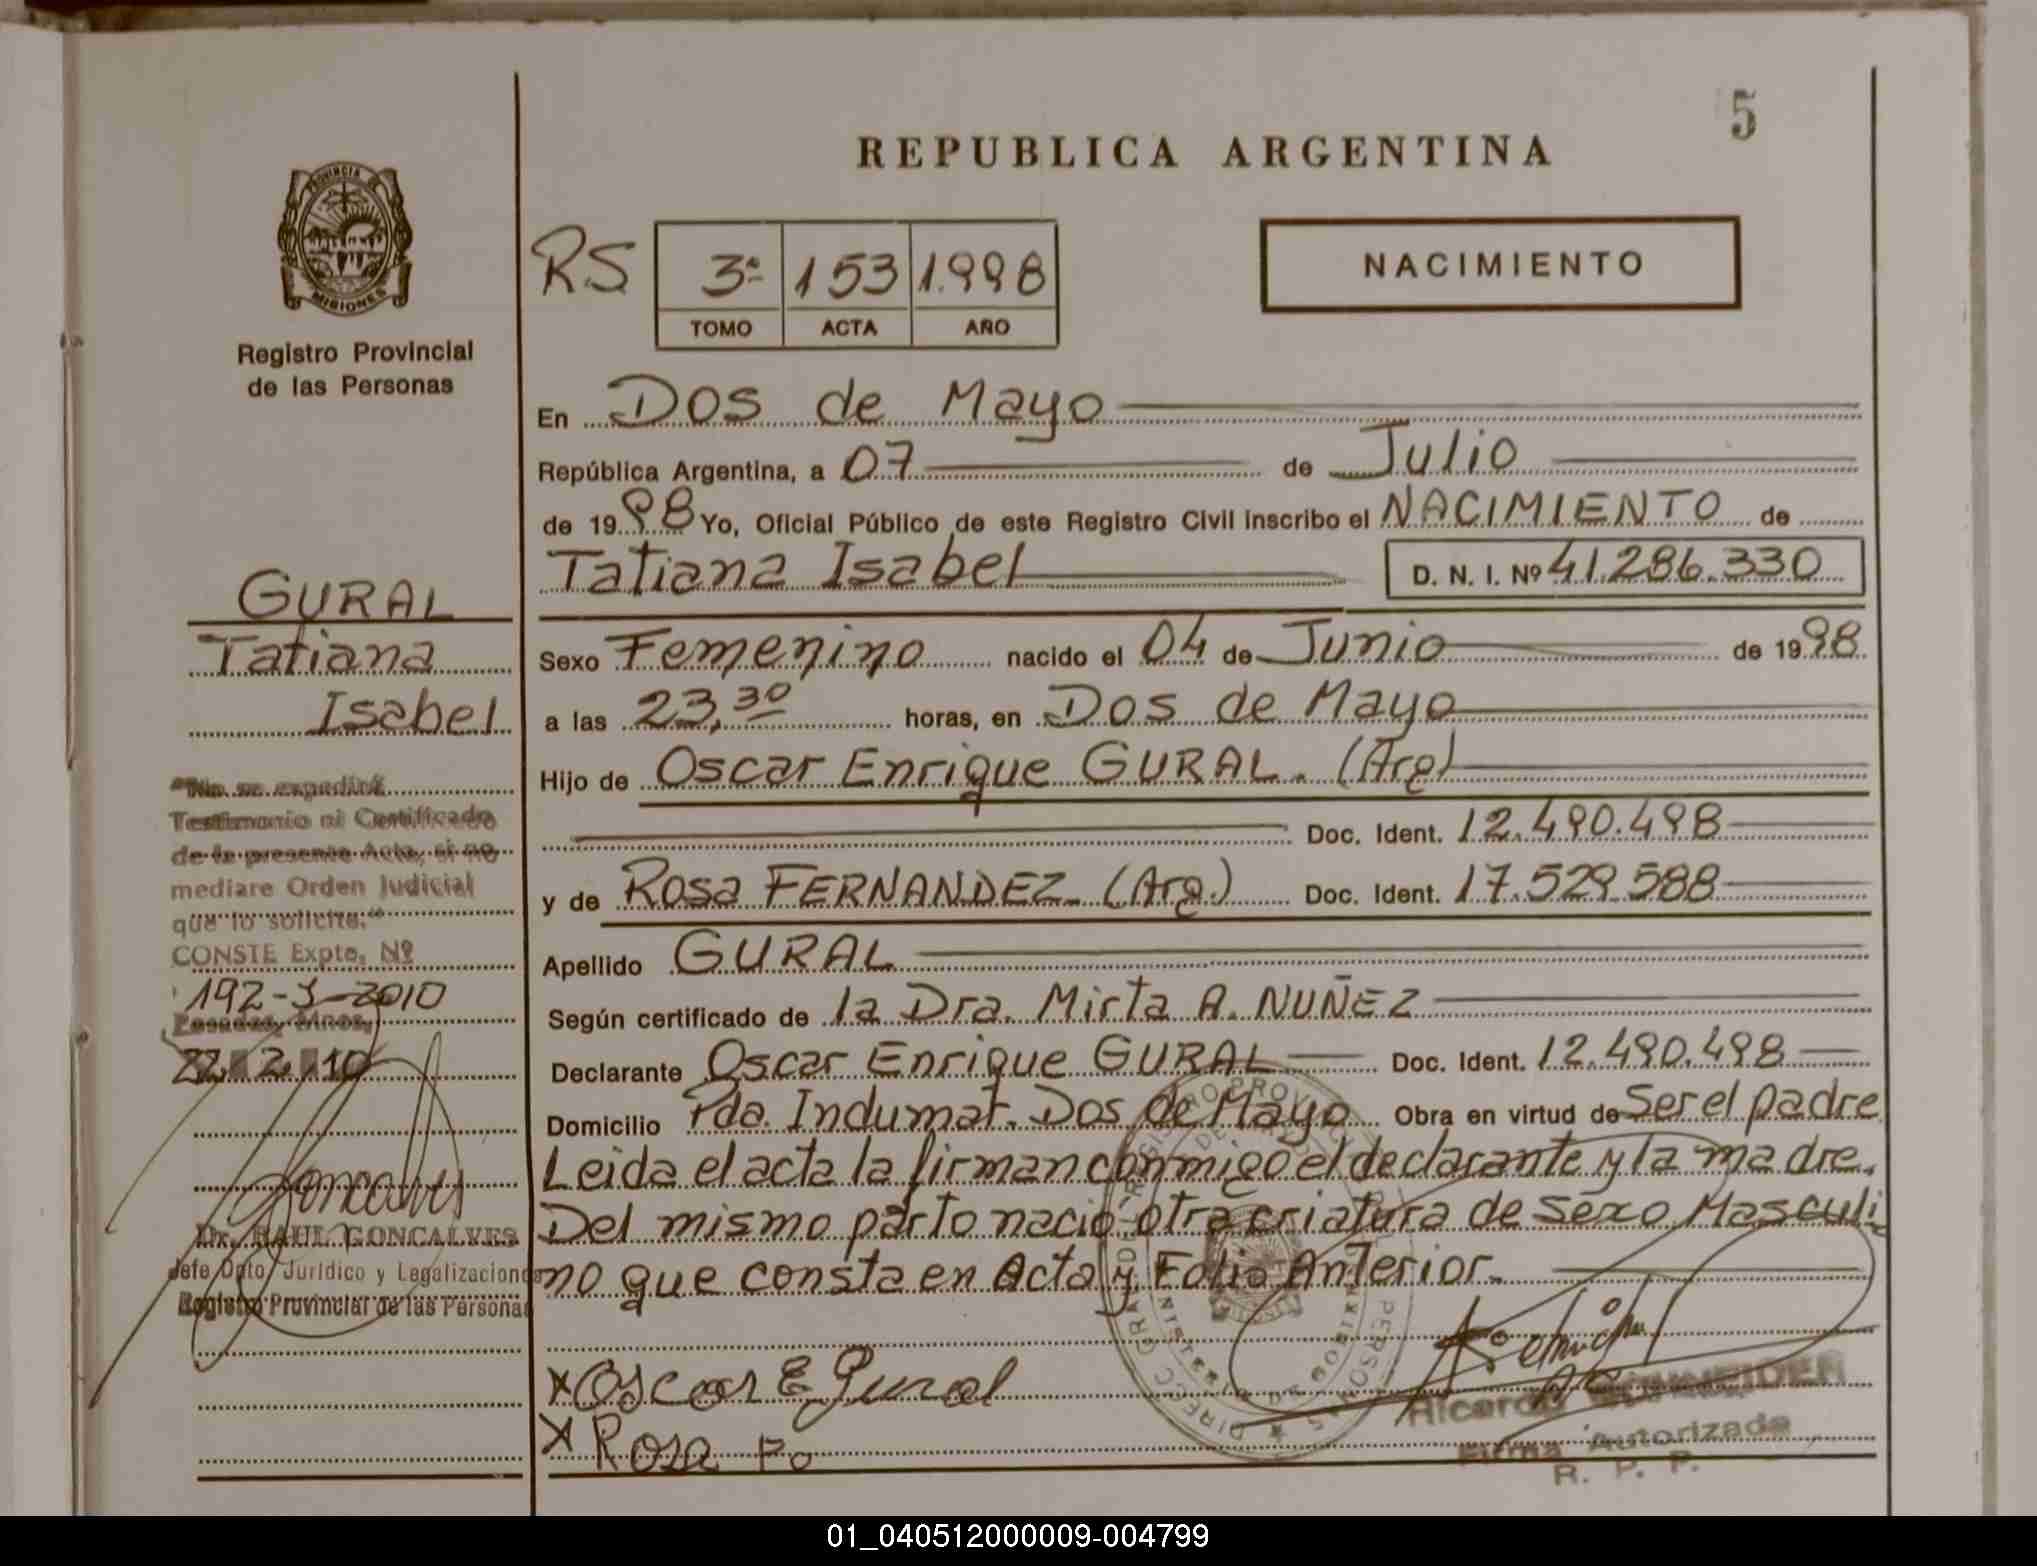 5
REPUBLICA ARGENTINA
PROVINCIA DE
MISIONES
Registro Provincial
de las Personas
RS 3º 153 1.998
TOMO ACTA AÑO
NACIMIENTO
En Dos de Mayo
República Argentina, a 07 de Julio
de 1998 Yo, Oficial Público de este Registro Civil inscribo el NACIMIENTO de
Tatiana Isabel D. N. I. Nº 41.286.330
Sexo Femenino nacido el 04 de Junio de 1998
a las 23,30 horas, en Dos de Mayo
Hijo de Oscar Enrique GURAL. (Arg)
Doc. Ident. 12.490.498
y de Rosa FERNANDEZ. (Arg.) Doc. Ident. 17.529.588
Apellido GURAL
Según certificado de la Dra. Mirta A. NUÑEZ
Declarante Oscar Enrique GURAL Doc. Ident. 12.490.498
Domicilio Pda. Indumar. Dos de Mayo Obra en virtud de Ser el padre
Leida el acta la firman conmigo el declarante y la madre.
Del mismo parto nació otra criatura de sexo Masculi
no que consta en Acta y Folio Anterior.
X Oscar E Gural
X Rosa Fo
Ricardo SCHNEIDER
Firma Autorizada
R. P. P.
GURAL
Tatiana
Isabel
"No se expedirá
Testimonio ni Certificado
de la presente Acta, si no
mediare Orden Judicial
que lo solicite."
CONSTE Expte. Nº
192-J-2010
Posadas, Mnes,
22 2 10
Goncalves
Dr. RAUL GONCALVES
Jefe Dpto. Jurídico y Legalizaciones
Registro Provincial de las Personas
01_040512000009-004799